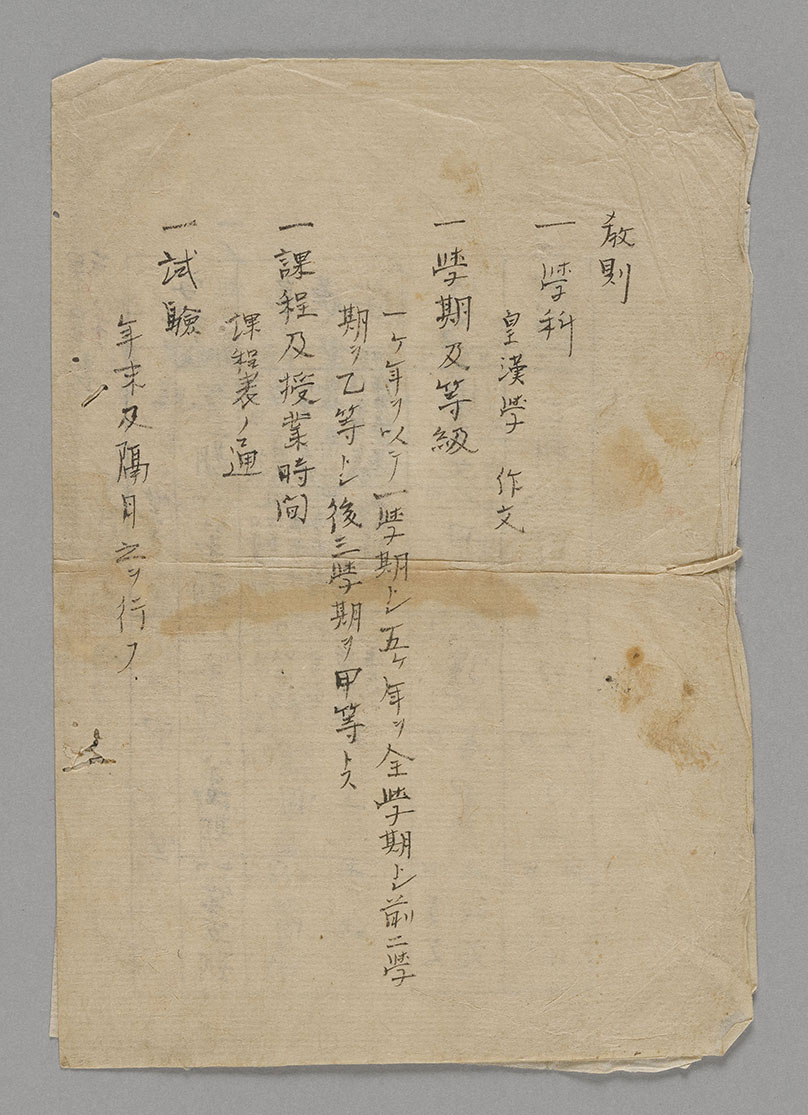 教則
一 學科
皇漢學 作文
一 學期及等級
一ケ年ヲ以テ一學期トシ五ケ年ヲ全學期トシ前二學
期ヲ乙等トシ後三學期ヲ甲等トス
一 課程及授業時間
課程表ノ通
一 試驗
年末及隔月之ヲ行フ